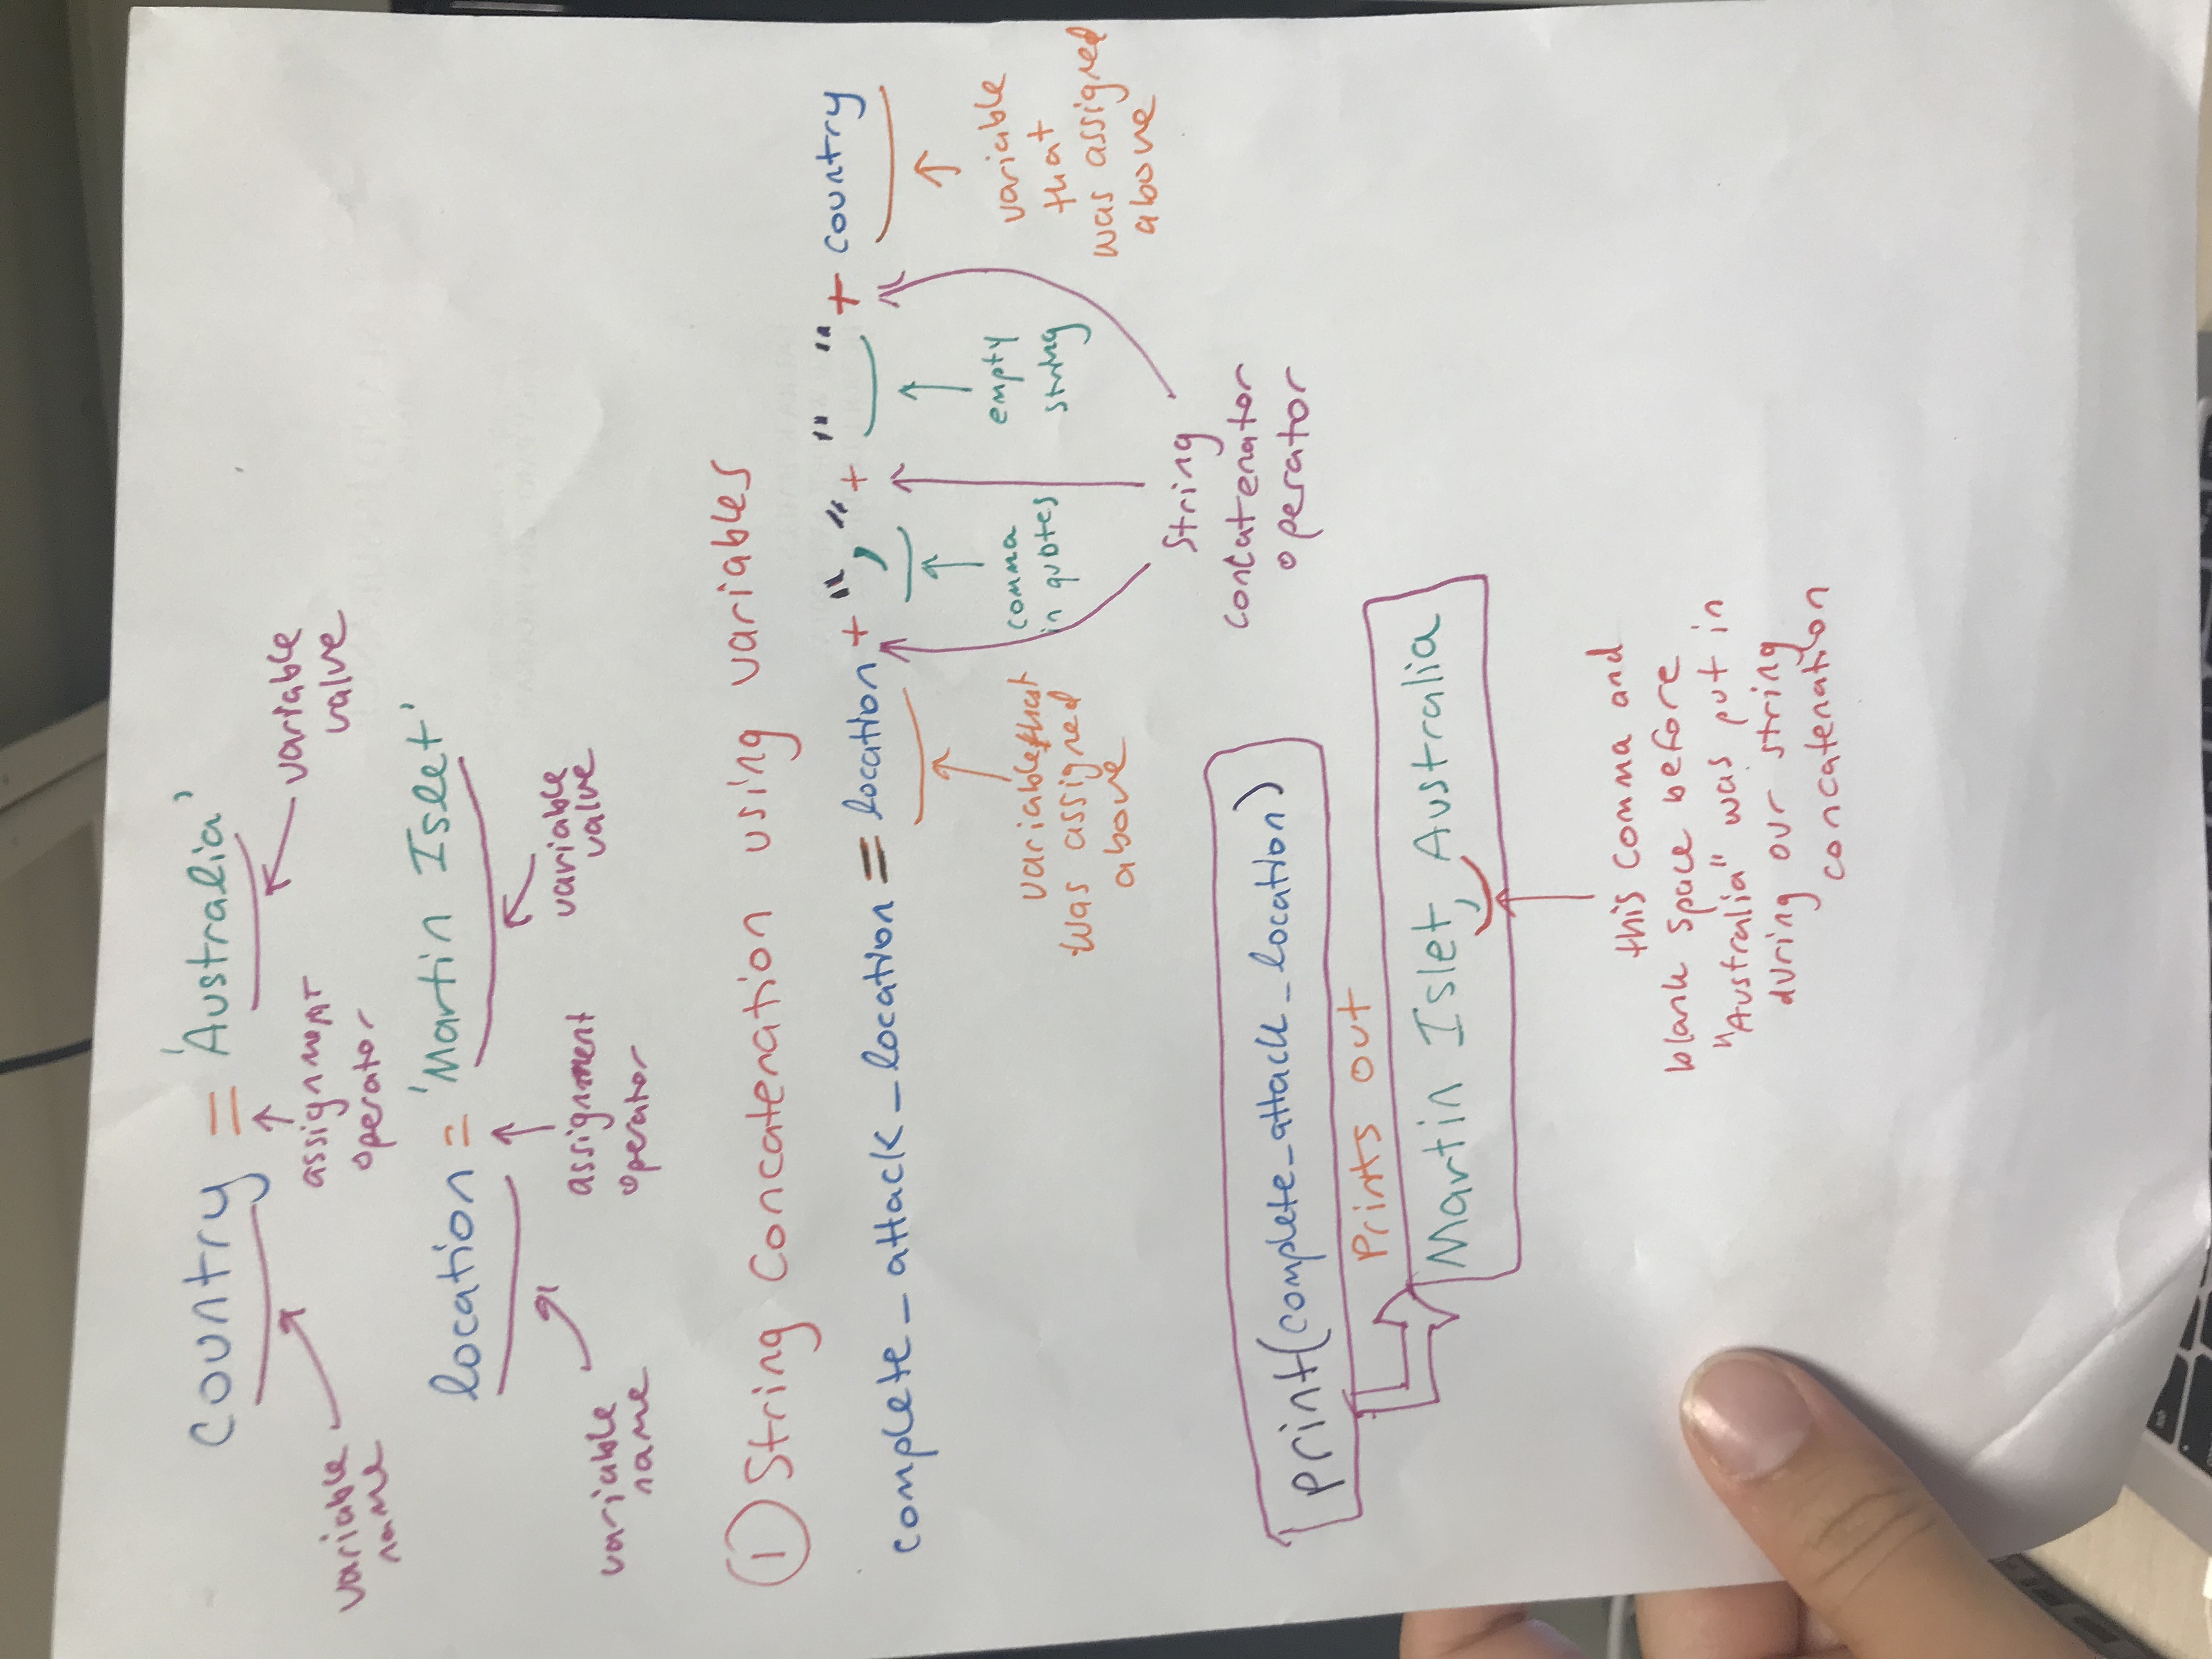 country = 'Australia'
variable name
assignment operator
variable value
location = 'Martin Islet'
variable name
assignment operator
variable value
① String Concatenation using variables
complete_attack_location = location + "," + " " + country
variable that
was assigned
above
comma
in quotes
empty
string
variable
that
was assigned
above
String
concatenator
operator
print(complete_attack_location)
Prints out
Martin Islet, Australia
this comma and
blank space before
"Australia" was put in
during our string
concatenation